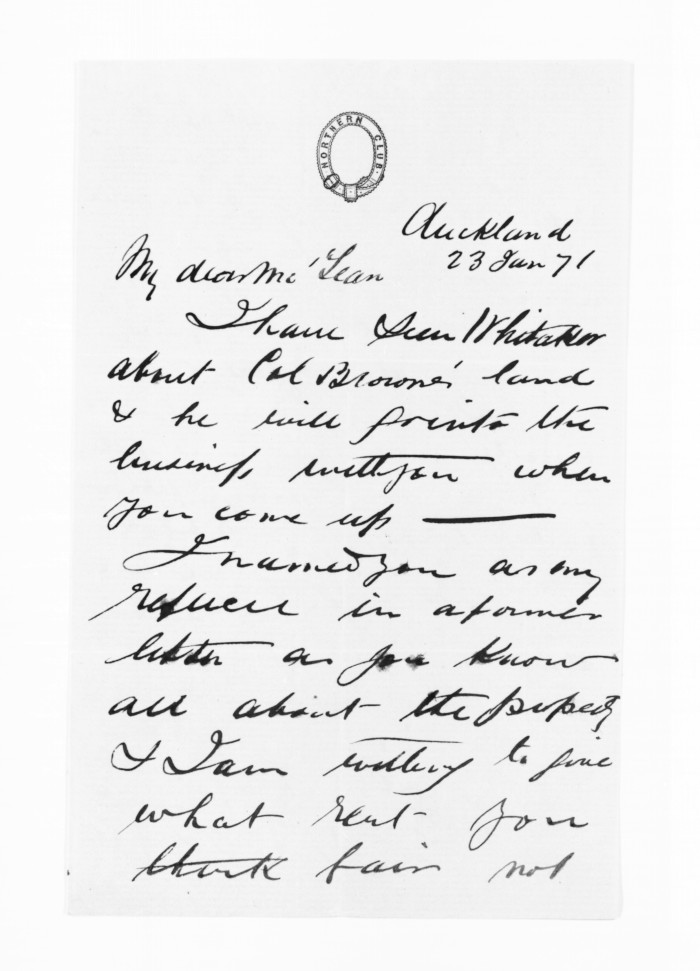 NORTHERN CLUB
Auckland
23 Jan 71
My dear McLean
I have seen Whitaker
about Col Browne's land
& he will go into the
business with you when
you come up —
I named you as my
referee in a former
letter as you know
all about the property
& I am willing to give
what rent you
think fair not